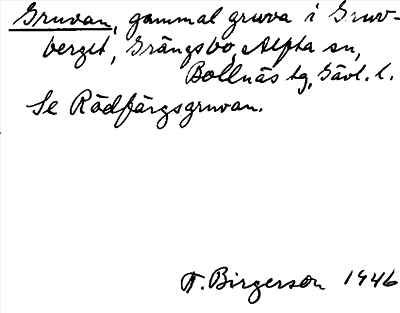 Gruvan, gammal gruva i Gruv-
berget, Grängsbo, Alfta sn,
Bollnäs tg, Gävl. l.
Se Rödfärgsgruvan.
T. Birgerson 1946